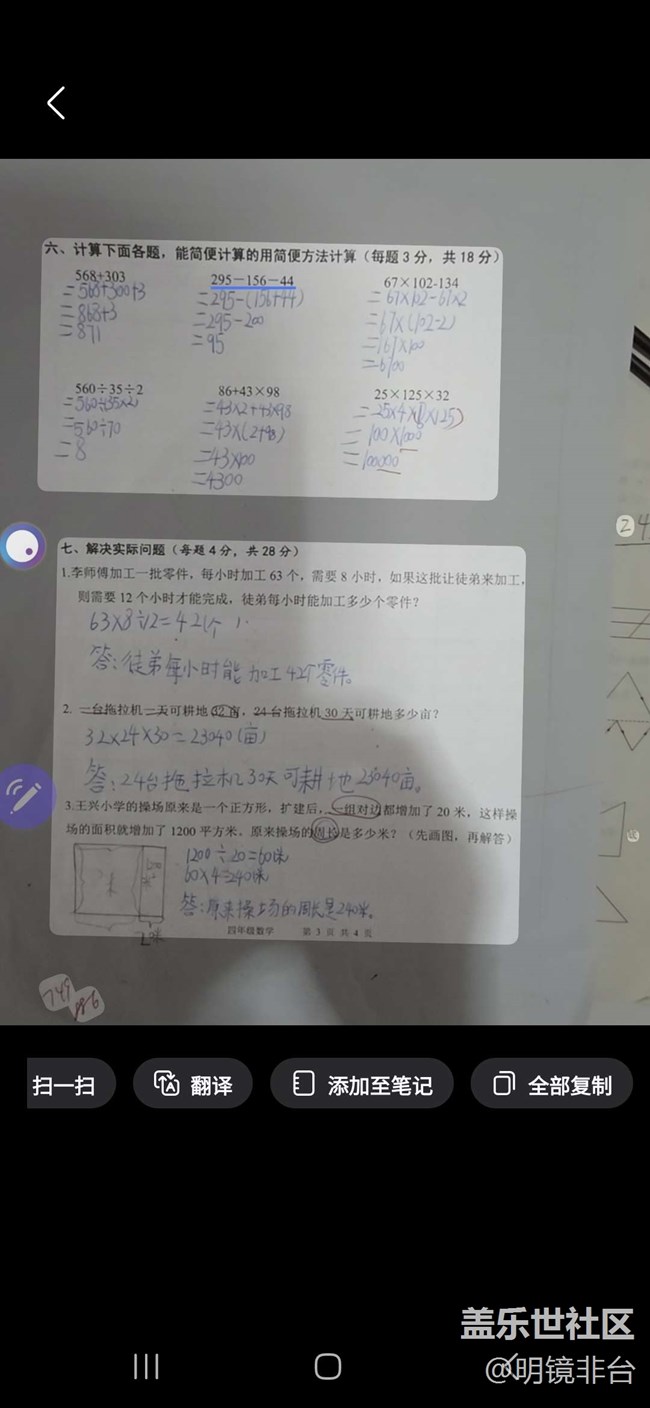 六、计算下面各题，能简便计算的用简便方法计算（每题3分，共18分）
568+303
295-156-44
67×102-134
=568+300+3
=295-(156+44)
=67×102-67×2
=868+3
=295-200
=67×(102-2)
=871
=95
=67×100
=6700
560÷35÷2
86+43×98
25×125×32
=560÷(35×2)
=43×2+43×98
=25×4×(8×125)
=560÷70
=43×(2+98)
=100×1000
=8
=43×100
=100000
=4300
七、解决实际问题（每题4分，共28分）
1.李师傅加工一批零件，每小时加工63个，需要8小时，如果这批让徒弟来加工，
则需要12个小时才能完成，徒弟每小时能加工多少个零件？
63×8÷12=42(个)
答:徒弟每小时能加工42个零件。
2. 一台拖拉机一天可耕地32亩，24台拖拉机30天可耕地多少亩？
32×24×30=23040(亩)
答:24台拖拉机30天可耕地23040亩。
3.王兴小学的操场原来是一个正方形，扩建后，一组对边都增加了20米，这样操
场的面积就增加了1200平方米，原来操场的周长是多少米？（先画图，再解答）
1200÷20=60米
60×4=240米
答:原来操场的周长是240米。
20米
四年级数学 第3页共4页
2
扫一扫
翻译
添加至笔记
全部复制
盖乐世社区
@明镜非台